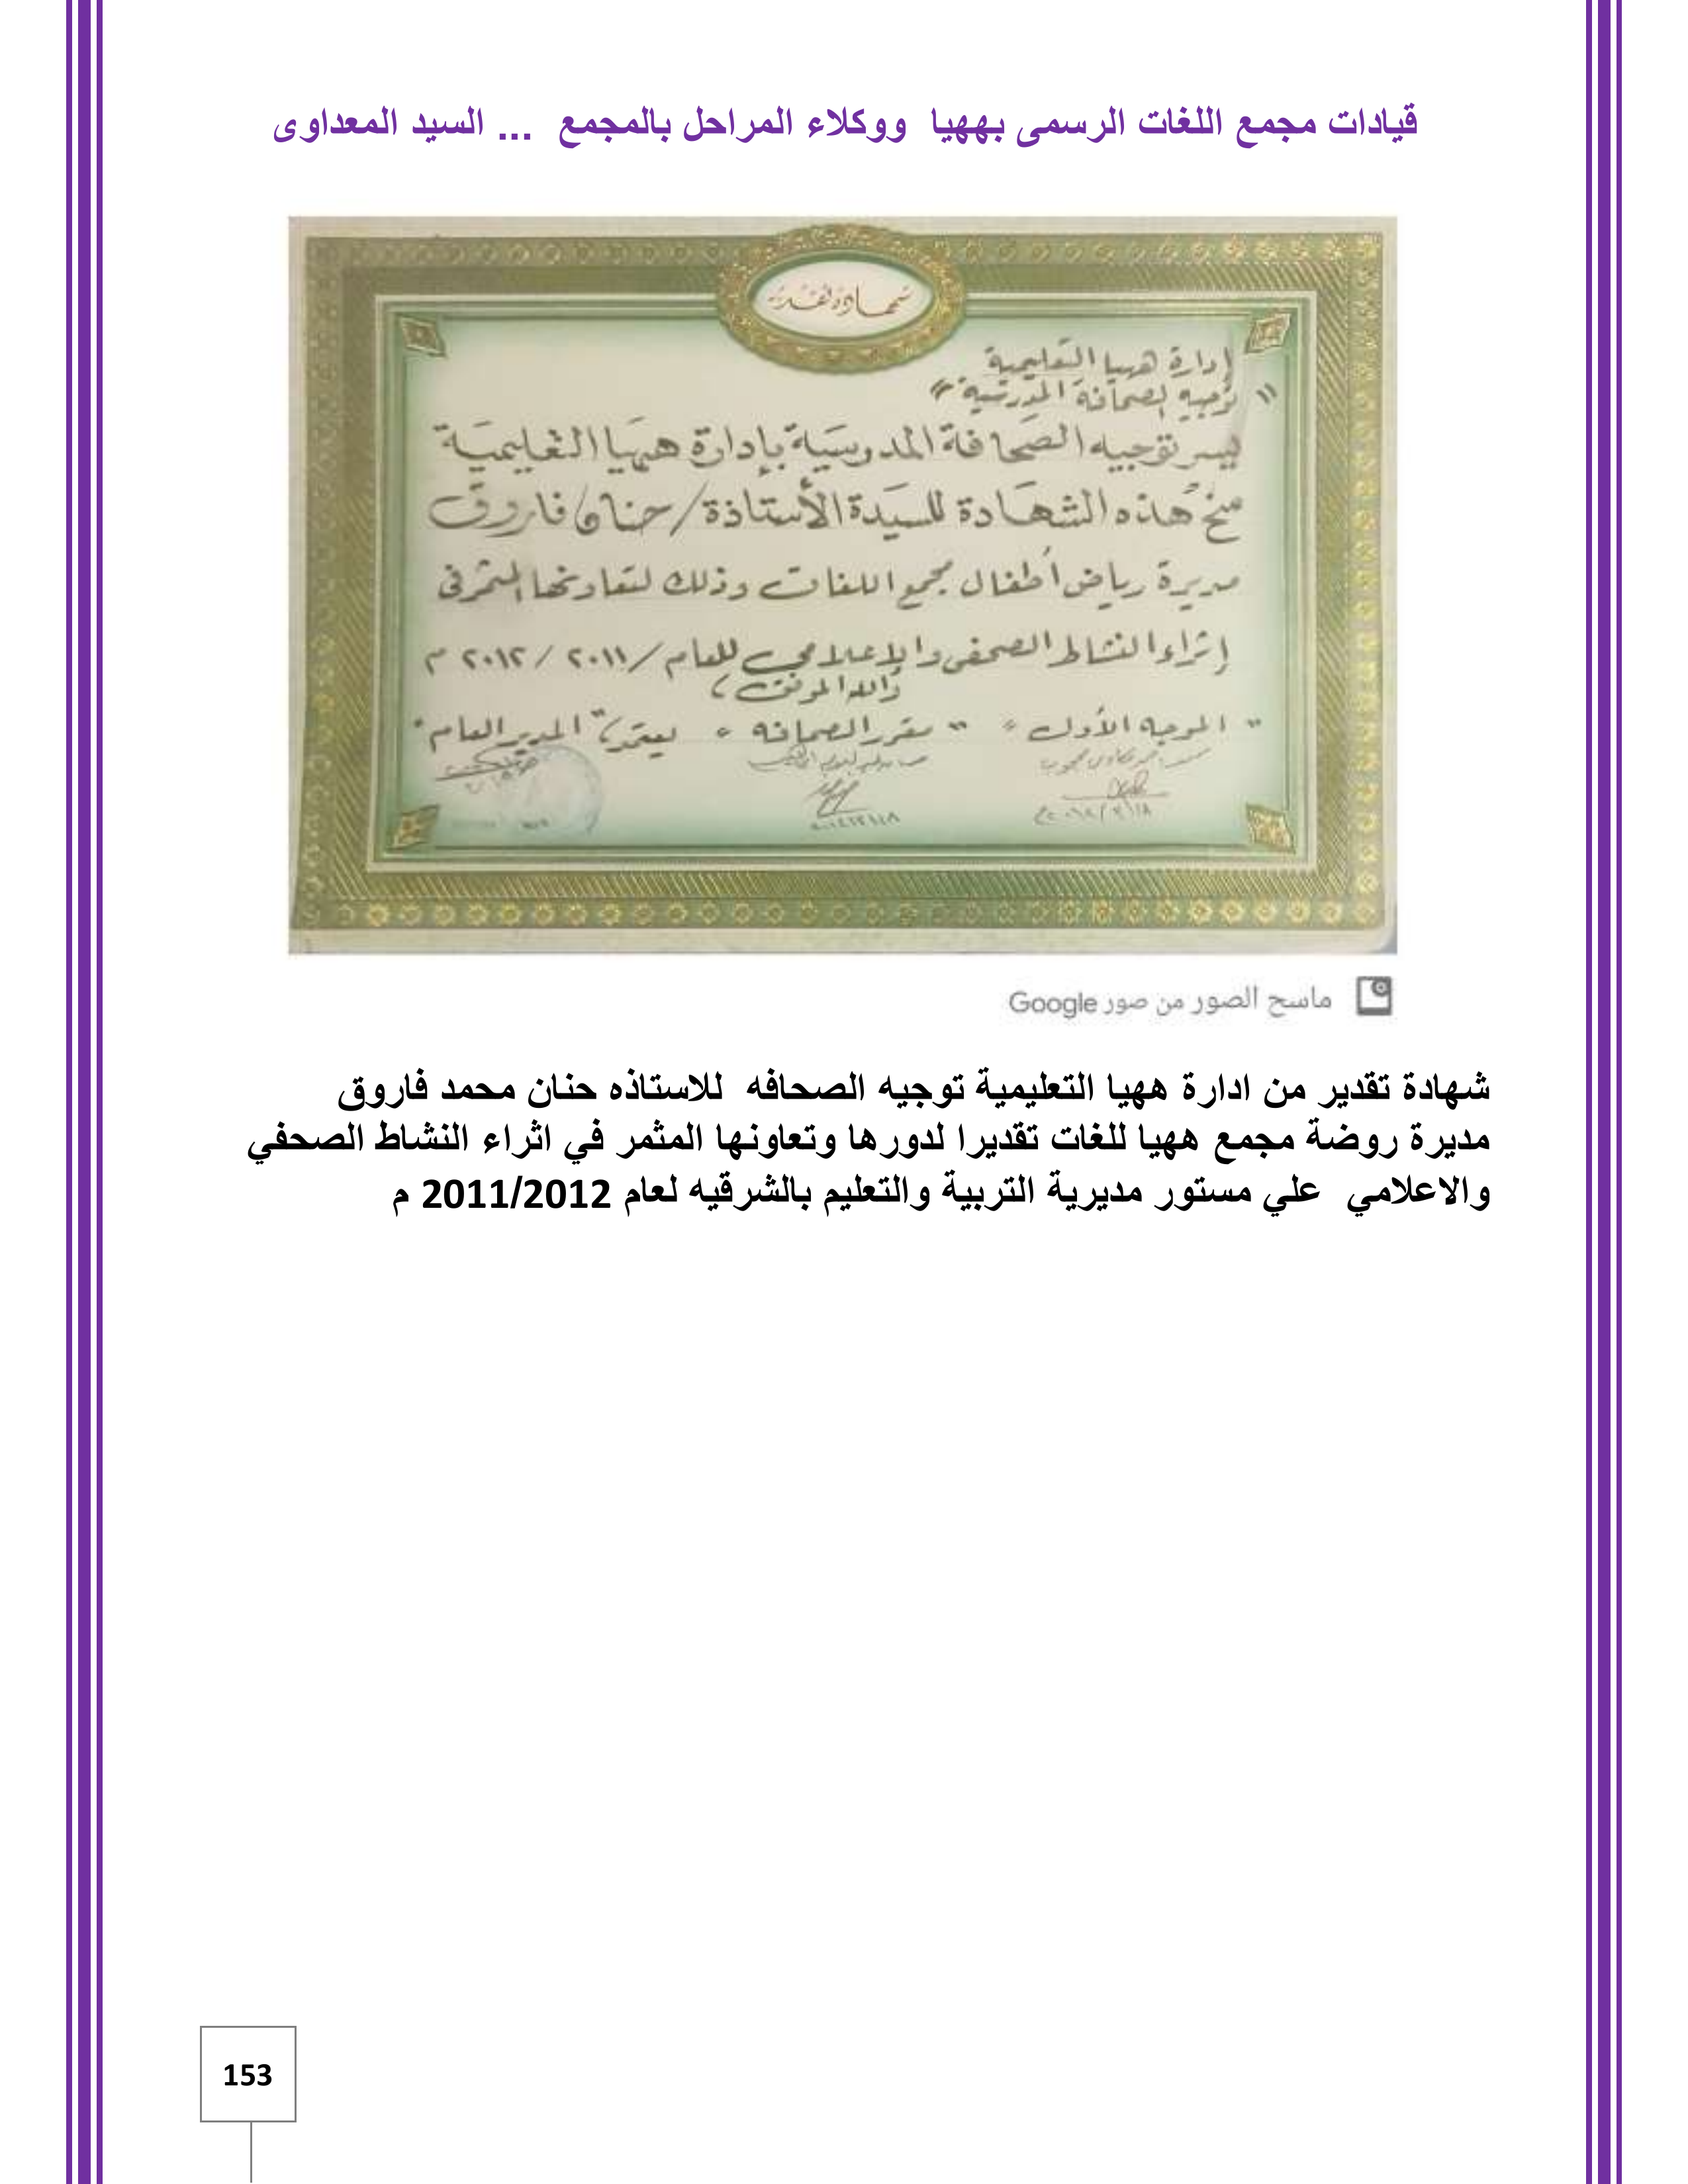 قيادات مجمع اللغات الرسمى بههيا ووكلاء المراحل بالمجمع ... السيد المعداوى
شهادة تقدير
إدارة ههيا التعليمية
" توجيه الصحافة المدرسية "
يسر توجيه الصحافة المدرسية بإدارة ههيا التعليمية
منح هذه الشهادة للسيدة الأستاذة / حنان فاروق
مديرة رياض أطفال مجمع اللغات وذلك لتعاونها المثمر فى
إثراء النشاط الصحفى والإعلامى للعام / ٢٠١١ / ٢٠١٢ م
والله الموفق،
" الموجه الأول " " مقرر الصحافة " يعتمد،" المدير العام "
ماسح الصور من صور Google
شهادة تقدير من ادارة ههيا التعليمية توجيه الصحافه للاستاذه حنان محمد فاروق
مديرة روضة مجمع ههيا للغات تقديرا لدورها وتعاونها المثمر في اثراء النشاط الصحفي
والاعلامي علي مستور مديرية التربية والتعليم بالشرقيه لعام 2011/2012 م
153